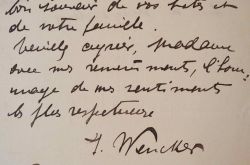 bon souvenir de vos bontés et
de votre famille.
Veuillez agréer, Madame
avec mes remerciments, l'hom-
mage de mes sentiments
les plus respectueux
Wencker